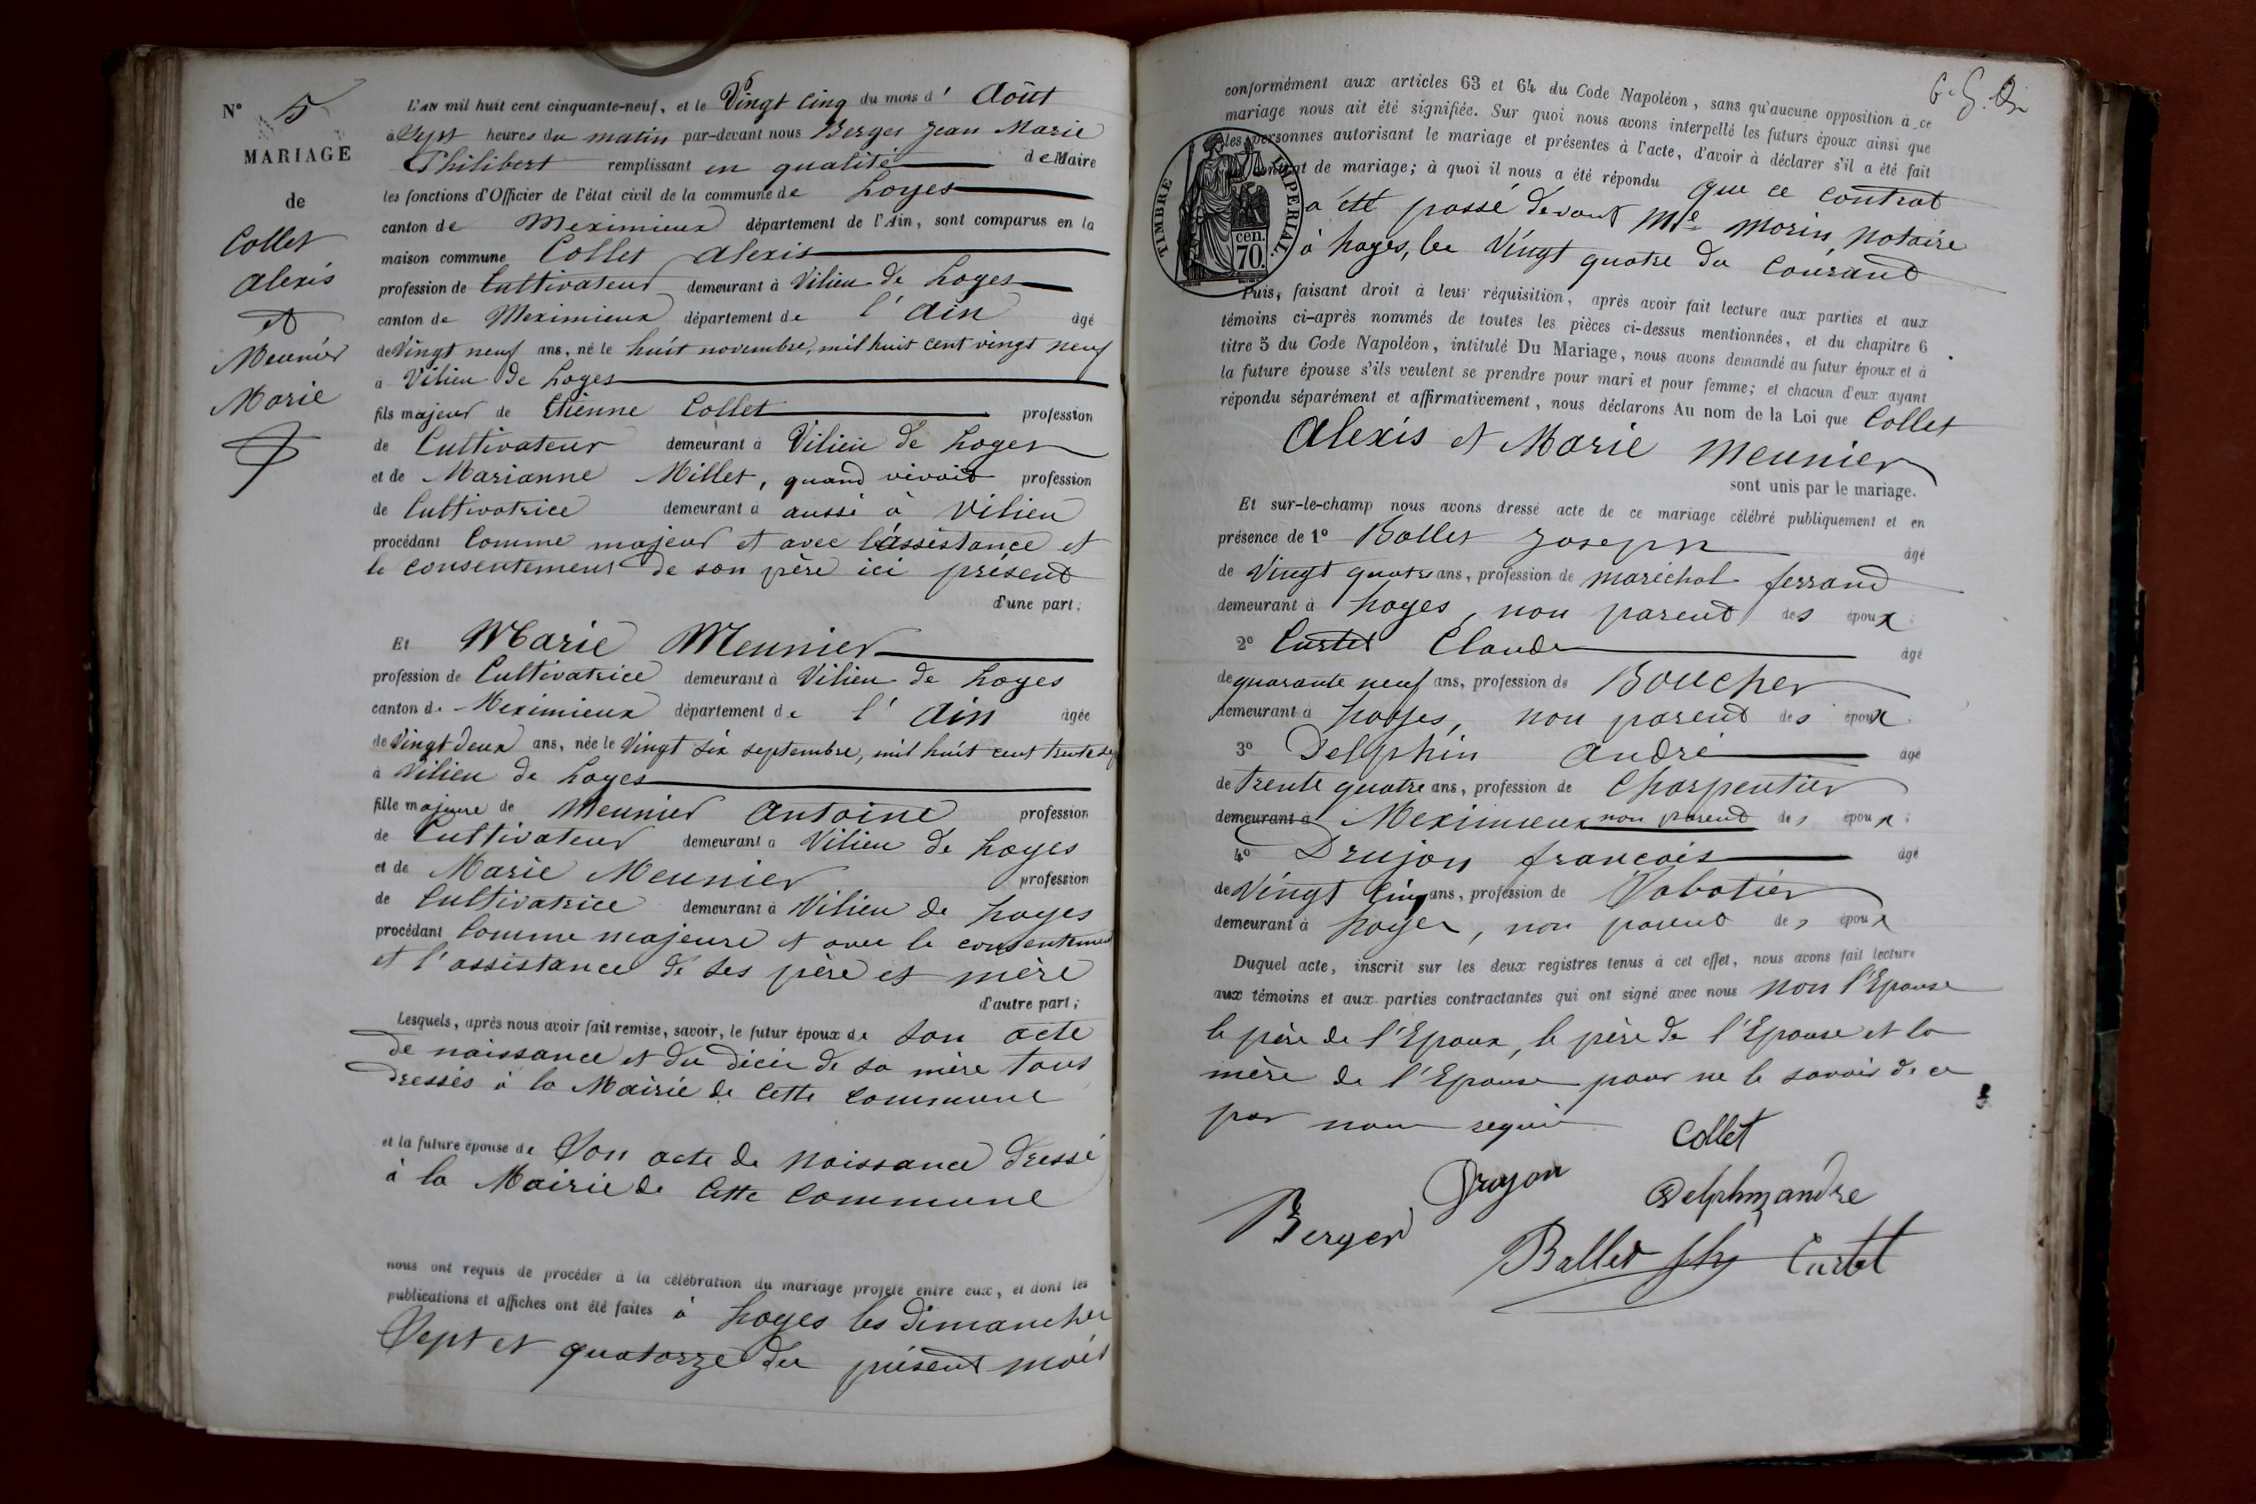 N° 5
MARIAGE
de
Collet
Alexis
et
Meunier
Marie
L'AN mil huit cent cinquante-neuf, et le Vingt Cinq du mois d' Août
à Sept heures du matin par-devant nous Berger Jean Marie
Philibert remplissant en qualité de Maire
les fonctions d'Officier de l'état civil de la commune de Loyes
canton de Meximieux département de l'Ain, sont comparus en la
maison commune Collet Alexis
profession de Cultivateur demeurant à Vilieu de Loyes
canton de Meximieux département de l' Ain âgé
de Vingt neuf ans, né le huit novembre, mil huit cent vingt neuf
à Vilieu de Loyes
fils majeur de Etienne Collet profession
de Cultivateur demeurant à Vilieu de Loyes
et de Marianne Millet, quand vivait profession
de Cultivatrice demeurant à aussi à Vilieu
procédant Comme majeur et avec l'assistance et
le consentement de son père ici présent
d'une part;
Et Marie Meunier
profession de Cultivatrice demeurant à Vilieu de Loyes
canton de Meximieux département de l' Ain âgée
de Vingt deux ans, née le Vingt Six septembre, mil huit cent trente sep
à Vilieu de Loyes
fille majeure de Meunier Antoine profession
de Cultivateur demeurant à Vilieu de Loyes
et de Marie Meunier profession
de Cultivatrice demeurant à Vilieu de Loyes
procédant Comme majeure et avec le consentement
et l'assistance de ses père et mère
d'autre part;
Lesquels, après nous avoir fait remise, savoir, le futur époux de Son acte
de naissance et du décès de sa mère tous
dressés à la Mairie de Cette Commune
et la future épouse de Son acte de Naissance dressé
à la Mairie de Cette Commune
nous ont requis de procéder à la célébration du mariage projeté entre eux, et dont les
publications et affiches ont été faites à Loyes les dimanches
Sept et quatorze du présent mois
conformément aux articles 63 et 64 du Code Napoléon, sans qu'aucune opposition à ce
mariage nous ait été signifiée. Sur quoi nous avons interpellé les futurs époux ainsi que
les personnes autorisant le mariage et présentes à l'acte, d'avoir à déclarer s'il a été fait
contrat de mariage; à quoi il nous a été répondu que ce contrat
a été passé devant Me Morin, Notaire
à Loyes, le Vingt quatre du Courant
TIMBRE IMPERIAL.
cen.
70.
Puis, faisant droit à leur réquisition, après avoir fait lecture aux parties et aux
témoins ci-après nommés de toutes les pièces ci-dessus mentionnées, et du chapitre 6
titre 5 du Code Napoléon, intitulé Du Mariage, nous avons demandé au futur époux et à
la future épouse s'ils veulent se prendre pour mari et pour femme; et chacun d'eux ayant
répondu séparément et affirmativement, nous déclarons Au nom de la Loi que Collet
Alexis et Marie Meunier
sont unis par le mariage.
Et sur-le-champ nous avons dressé acte de ce mariage célébré publiquement et en
présence de 1° Ballet Joseph âgé
de Vingt quatre ans, profession de maréchal ferrand
demeurant à Loyes, non parent des époux;
2° Curtet Claude âgé
de quarante neuf ans, profession de Boucher
demeurant à Loyes, non parent des époux
3° Delphin André âgé
de trente quatre ans, profession de Charpentier
demeurant à Meximieux non parent des époux;
4° Drujon françois âgé
de Vingt Cinq ans, profession de Sabotier
demeurant à Loyes, non parent des époux
Duquel acte, inscrit sur les deux registres tenus à cet effet, nous avons fait lecture
aux témoins et aux parties contractantes qui ont signé avec nous non l'Epouse
le père de l'Epoux, le père de l'Epouse et la
mère de l'Epouse pour ne le savoir de ce
par nous requis
Collet
Drujon
Delphin andre
Berger
Ballet Jh
Curtet